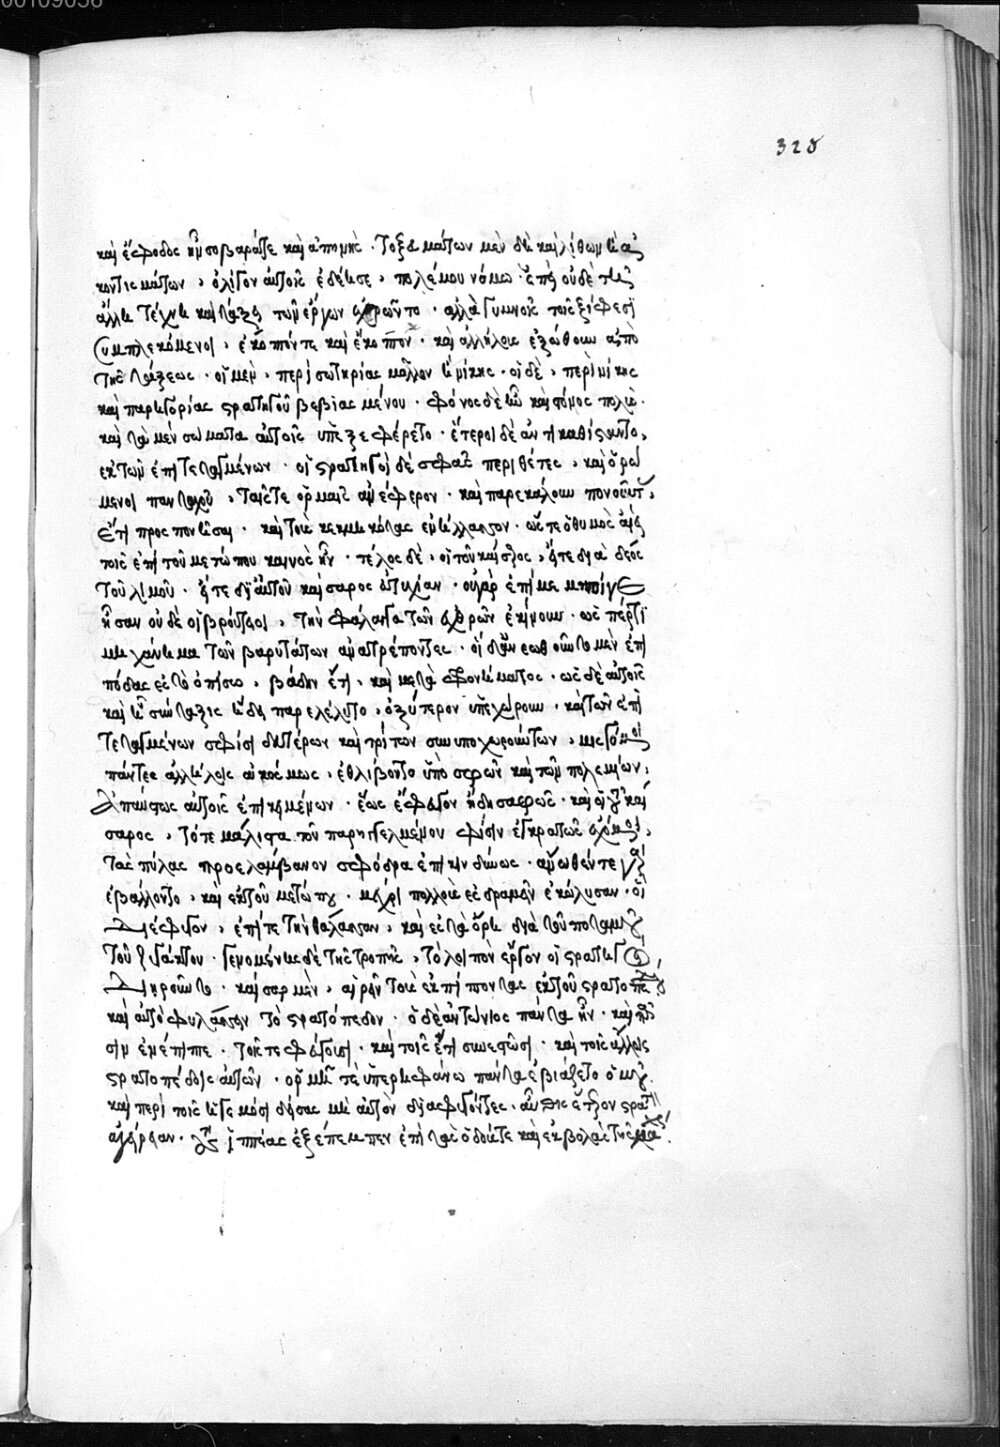 00109056
328
καὶ ἔφοδος ἦν σοβαρά τε καὶ ἀπηνής· τοξευμάτων μὲν δὴ καὶ λίθων ἢ ἀ
κοντισμάτων, ὀλίγον αὐτοῖς ἐδέησε, πολέμου νόμῳ· ἐπεὶ οὐδὲ τῇ
ἄλλῃ τέχνῃ καὶ τάξει τῶν ἔργων ἐχρῶντο· ἀλλὰ γυμνοῖς τοῖς ξίφεσι
συμπλεκόμενοι, ἔκοπτόν τε καὶ ἐκόπτοντο· καὶ ἀλλήλους ἐξώθουν ἀπὸ
τῆς τάξεως· οἱ μὲν, περὶ σωτηρίας μᾶλλον ἢ νίκης· οἱ δὲ, περὶ νίκης
καὶ παρηγορίας στρατηγοῦ βεβιασμένου· φόνος δὲ ἦν καὶ στόνος πολύς·
καὶ τὰ μὲν σώματα αὐτοῖς ὑπεξεφέρετο· ἕτεροι δὲ ἀντικαθίσταντο,
ἐκ τῶν ἐπιτεταγμένων· οἱ στρατηγοὶ δὲ σφᾶς περιθέοντες, καὶ ὁρώ
μενοι πανταχοῦ, ταῖς τε ὁρμαῖς ἀνέφερον· καὶ παρεκάλουν πονοῦντας
ἔτι προσπονῆσαι· καὶ τοὺς κεκμηκότας ἐνήλλασσον· ὥστε ὁ θυμὸς αἰεὶ
τοῖς ἐπὶ τοῦ μετώπου καινὸς ἦν· τέλος δὲ, οἱ τοῦ καίσαρος, εἴτε διὰ δέος
τοῦ λιμοῦ· εἴτε δι' αὐτοῦ καίσαρος εὐτυχίαν· οὐ γὰρ ἐπίμεμπτοί γε
ἦσαν οὐδὲ οἱ βρούτειοι, τὴν φάλαγγα τῶν ἐχθρῶν ἐκίνουν· ὥσπερ τι
μηχάνημα τῶν βαρυτάτων ἀνατρέποντες· οἱ δ' ἀνεωθοῦντο μὲν ἐπὶ
πόδας ἐς τὸ ὀπίσω, βάδην ἔτι, καὶ μετὰ φρονήματος· ὡς δὲ αὐτοῖς
καὶ ἡ σύνταξις ἤδη παρελέλυτο, ὀξύτερον ὑπεχώρουν· καὶ τῶν ἐπι
τεταγμένων σφίσι δευτέρων καὶ τρίτων συνυποχωρούντων, μισγόμενοι
πάντες ἀλλήλοις ἀκόσμως, ἐθλίβοντο ὑπὸ σφῶν καὶ τῶν πολεμίων,
ἀπαύστως αὐτοῖς ἐπικειμένων· ἕως ἔφευγον ἤδη σαφῶς· καὶ οἱ τοῦ καί
σαρος, τότε μάλιστα τοῦ παρηγγελμένου σφίσιν ἐγκρατῶς ἐχόμενοι,
τὰς πύλας προελάμβανον σφόδρα ἐπικινδύνως· ἄνωθέν τε γὰρ
ἐβάλλοντο, καὶ ἐκ τοῦ μετώπου· μέχρι πολλοὺς ἐσδραμεῖν ἐκώλυσαν· οἳ
διέφυγον, ἐπί τε τὴν θάλασσαν, καὶ ἐς τὰ ὄρη διὰ τοῦ ποταμοῦ
τοῦ ζυγάκτου· γενομένης δὲ τῆς τροπῆς, τὸ λοιπὸν ἔργον οἱ στρατηγοὶ
διῃροῦντο· καῖσαρ μὲν, αἱρεῖν τοὺς ἐκπίπτοντας ἐκ τοῦ στρατοπέδου
καὶ αὐτὸ φυλάσσειν τὸ στρατόπεδον· ὁ δὲ ἀντώνιος πάντα ἦν· καὶ πᾶ
σιν ἐνέπιπτε· τοῖς τε φεύγουσι· καὶ τοῖς ἔτι συνεστῶσι· καὶ τοῖς ἄλλοις
στρατοπέδοις αὐτῶν· ὁρμῇ τε ὑπερηφάνῳ πάντα ἐβιάζετο ὁμοῦ·
καὶ περὶ τοῖς ἡγεμόσι δείσας μὴ αὐτὸν διαφυγόντες, αὖθις ἕτερον στρατὸν
ἀγείρειαν· τοὺς ἱππέας ἐξέπεμπεν ἐπὶ τὰς ὁδούς τε καὶ ἐκβολὰς τῆς μάχης·